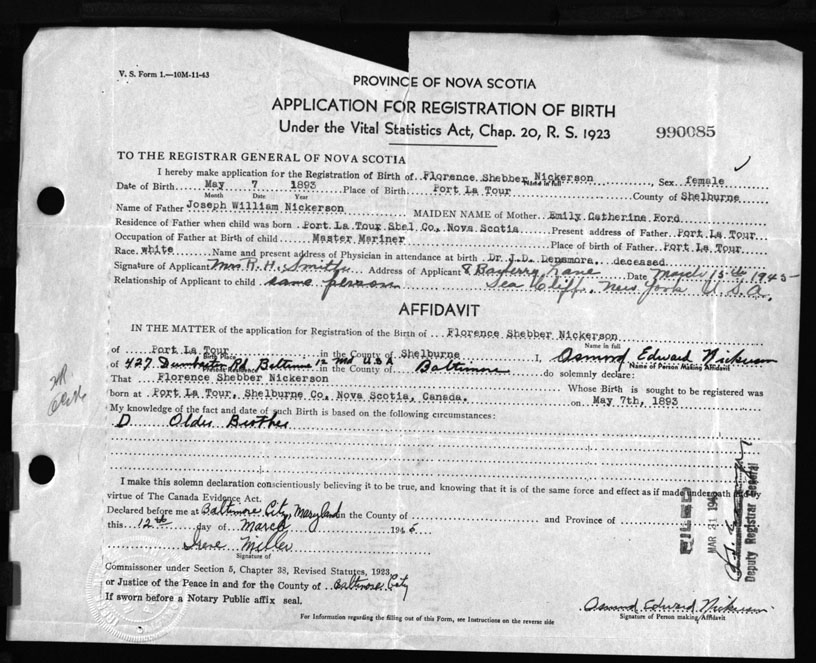 V. S. Form 1.—10M-11-43
PROVINCE OF NOVA SCOTIA
APPLICATION FOR REGISTRATION OF BIRTH
Under the Vital Statistics Act, Chap. 20, R. S. 1923
990085
TO THE REGISTRAR GENERAL OF NOVA SCOTIA
I hereby make application for the Registration of Birth of Florence Shebber Nickerson, Sex female
Name in full
Date of Birth May 7 1893 Place of Birth Port La Tour County of Shelburne
Month Date Year
Name of Father Joseph William Nickerson MAIDEN NAME of Mother Emily Catherine Ford
Residence of Father when child was born Port La Tour Shel Co. Nova Scotia Present address of Father Port La Tour
Occupation of Father at Birth of child Master Mariner Place of birth of Father Port La Tour
Race white Name and present address of Physician in attendance at birth Dr J.D. Densmore, deceased
Signature of Applicant Mrs R. H. Smith Address of Applicant 8 Bayberry Lane Date March 15th 1945
Relationship of Applicant to child same person Sea Cliff, New York U.S.A.
AFFIDAVIT
IN THE MATTER of the application for Registration of the Birth of Florence Shebber Nickerson
Name in full
of Port La Tour in the County of Shelburne I, Osmond Edward Nickerson
Birth Place Name of Person Making Affidavit
of 427 Rd Baltimore 12 Md U.S.A in the County of Baltimore do solemnly declare:
That Florence Shebber Nickerson Whose Birth is sought to be registered was
born at Port La Tour, Shelburne Co. Nova Scotia, Canada. on May 7th, 1893
My knowledge of the fact and date of such Birth is based on the following circumstances:
D Older Brother
I make this solemn declaration conscientiously believing it to be true, and knowing that it is of the same force and effect as if made under oath and by
virtue of The Canada Evidence Act.
Declared before me at Baltimore City, Maryland in the County of and Province of
this 12th day of March 1945
Irene Miller
Signature of
Commissioner under Section 5, Chapter 38, Revised Statutes, 1923,
or Justice of the Peace in and for the County of Baltimore City
If sworn before a Notary Public affix seal.
Osmond Edward Nickerson
Signature of Person making Affidavit
For Information regarding the filling out of this Form, see Instructions on the reverse side
FILED
MAR 31 1945
Deputy Registrar General